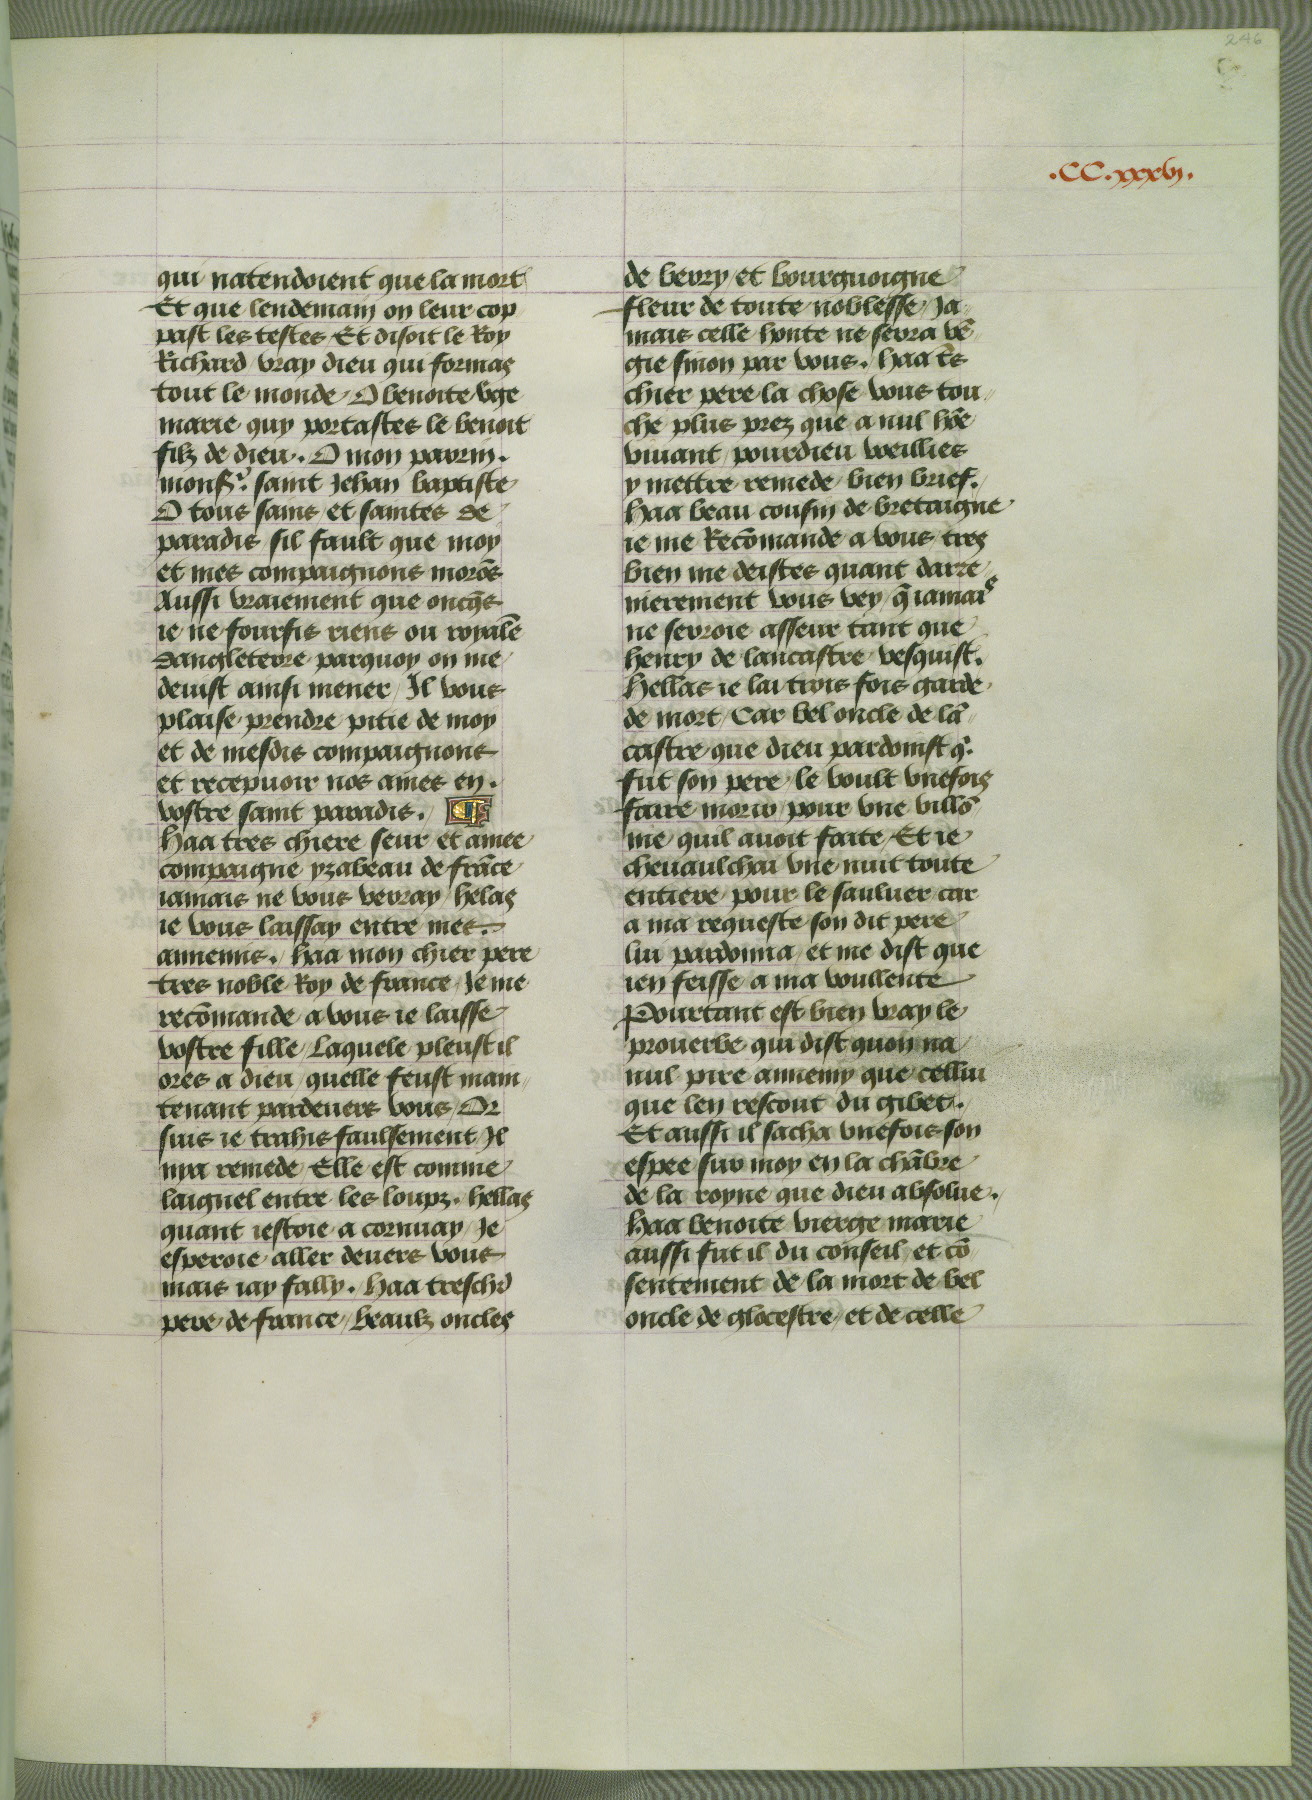 246
.CC.xxxvj.
qui natendoient que la mort
Et que lendemain on leur cop
past les testes Et disoit le Roy
Richard vray dieu qui formas
tout le monde / O benoite vge
marie quy portastes le benoit
filz de dieu. O mon parrin.
monsr. saint Jehan baptiste
O tous sains et saintes de
paradis sil fault que moy
et mes compaignons morōs
Aussi vraiement que oncq̄s
ie ne fourfis riens ou royalē
dangleterre parquoy on me
deuist ainsi mener / Il vous
plaise prendre pitie de moy
et de mesdis compaignons
et recepuoir nos ames en.
vostre saint paradis.
Haa tres chiere seur et amee
compaigne yzabeau de frāce
iamais ne vous verray / helas
ie vous laissay entre mes.
annemis. haa mon chier pere
tres noble Roy de france Je me
recōmande a vous ie laisse
vostre fille / Laquele pleust il
ores a dieu / quelle feust main
tenant pardeuers vous / Or
suis ie trahis faulsement Il
nya remede Elle est comme
laignel entre les loupz. hellas
quant iestoie a cornuay / Je
esperoie aller deuers vous
mais iay fally. haa treschr̄
pere de france / beaulz oncles
de berry / et bourguoigne
fleur de toute noblesse / Ja
mais celle honte ne serra vē
gie sinon par vous. haa trs̄
chier pere la chose vous tou
che plus prez que a nul hōe
viuant / pourdieu veullies
y mettre remede bien brief.
haa beau cousin de bretaigne
ie me Recōmande a vous tres
bien me deistes quant darre
nierement vous vey / q̄ iamais
ne serroie asseur tant que
henry de lancastre vesquist.
Hellas ie lai trois fois garde
de mort / Car bel oncle de lā
castre que dieu pardoinst q̄.
fut son pere / le voult vnefois
faire morir pour vne villō
nie quil auoit faite / Et ie
cheuaulchai vne nuit toute
entiere pour le sauluer car
a ma requeste son dit pere
lui pardonna et me dist que
ien feisse a ma voullente
Pourtant est bien vray le
prouerbe qui dist quon na
nul pire annemy que cellui
que len rescout du gibet.
Et aussi il sacha vnefois son
espee sur moy en la chābre
de la royne que dieu absolue.
Haa benoite vierge marie
aussi fut il du conseil et cō
sentement de la mort de bel
oncle de glocestre / et de celle